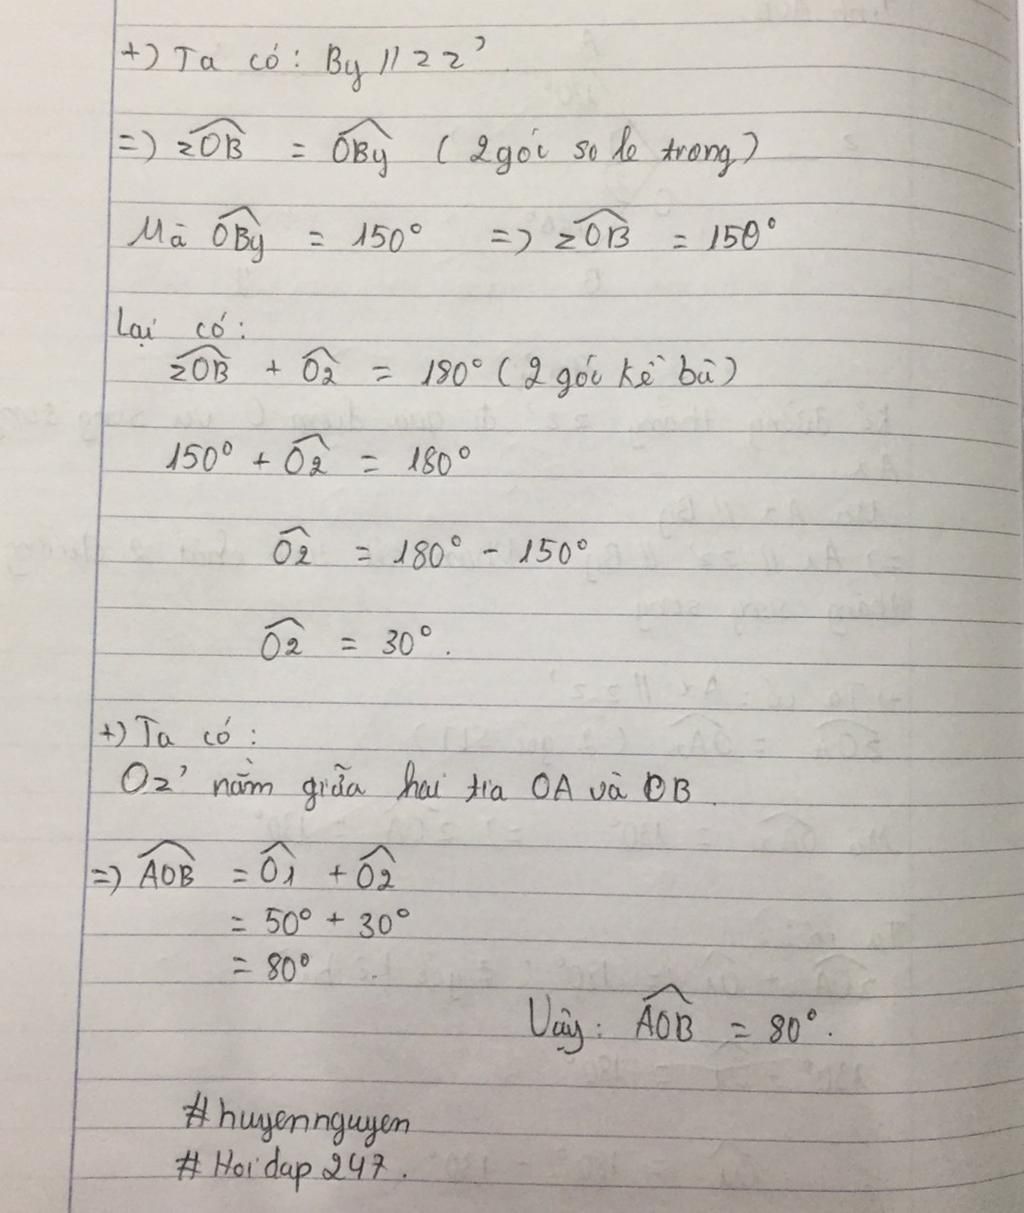 +) Ta có: By // zz'
=) zOB = OBy (2 góc so le trong)
Mà OBy = 150° => zOB = 150°
Lại có:
zOB + O2 = 180° (2 góc kề bù)
150° + O2 = 180°
O2 = 180° - 150°
O2 = 30°.
+) Ta có:
Oz' nằm giữa hai tia OA và OB.
=) AOB = O1 + O2
= 50° + 30°
= 80°
Vậy: AOB = 80°.
#huyennguyen
#Hoidap247.